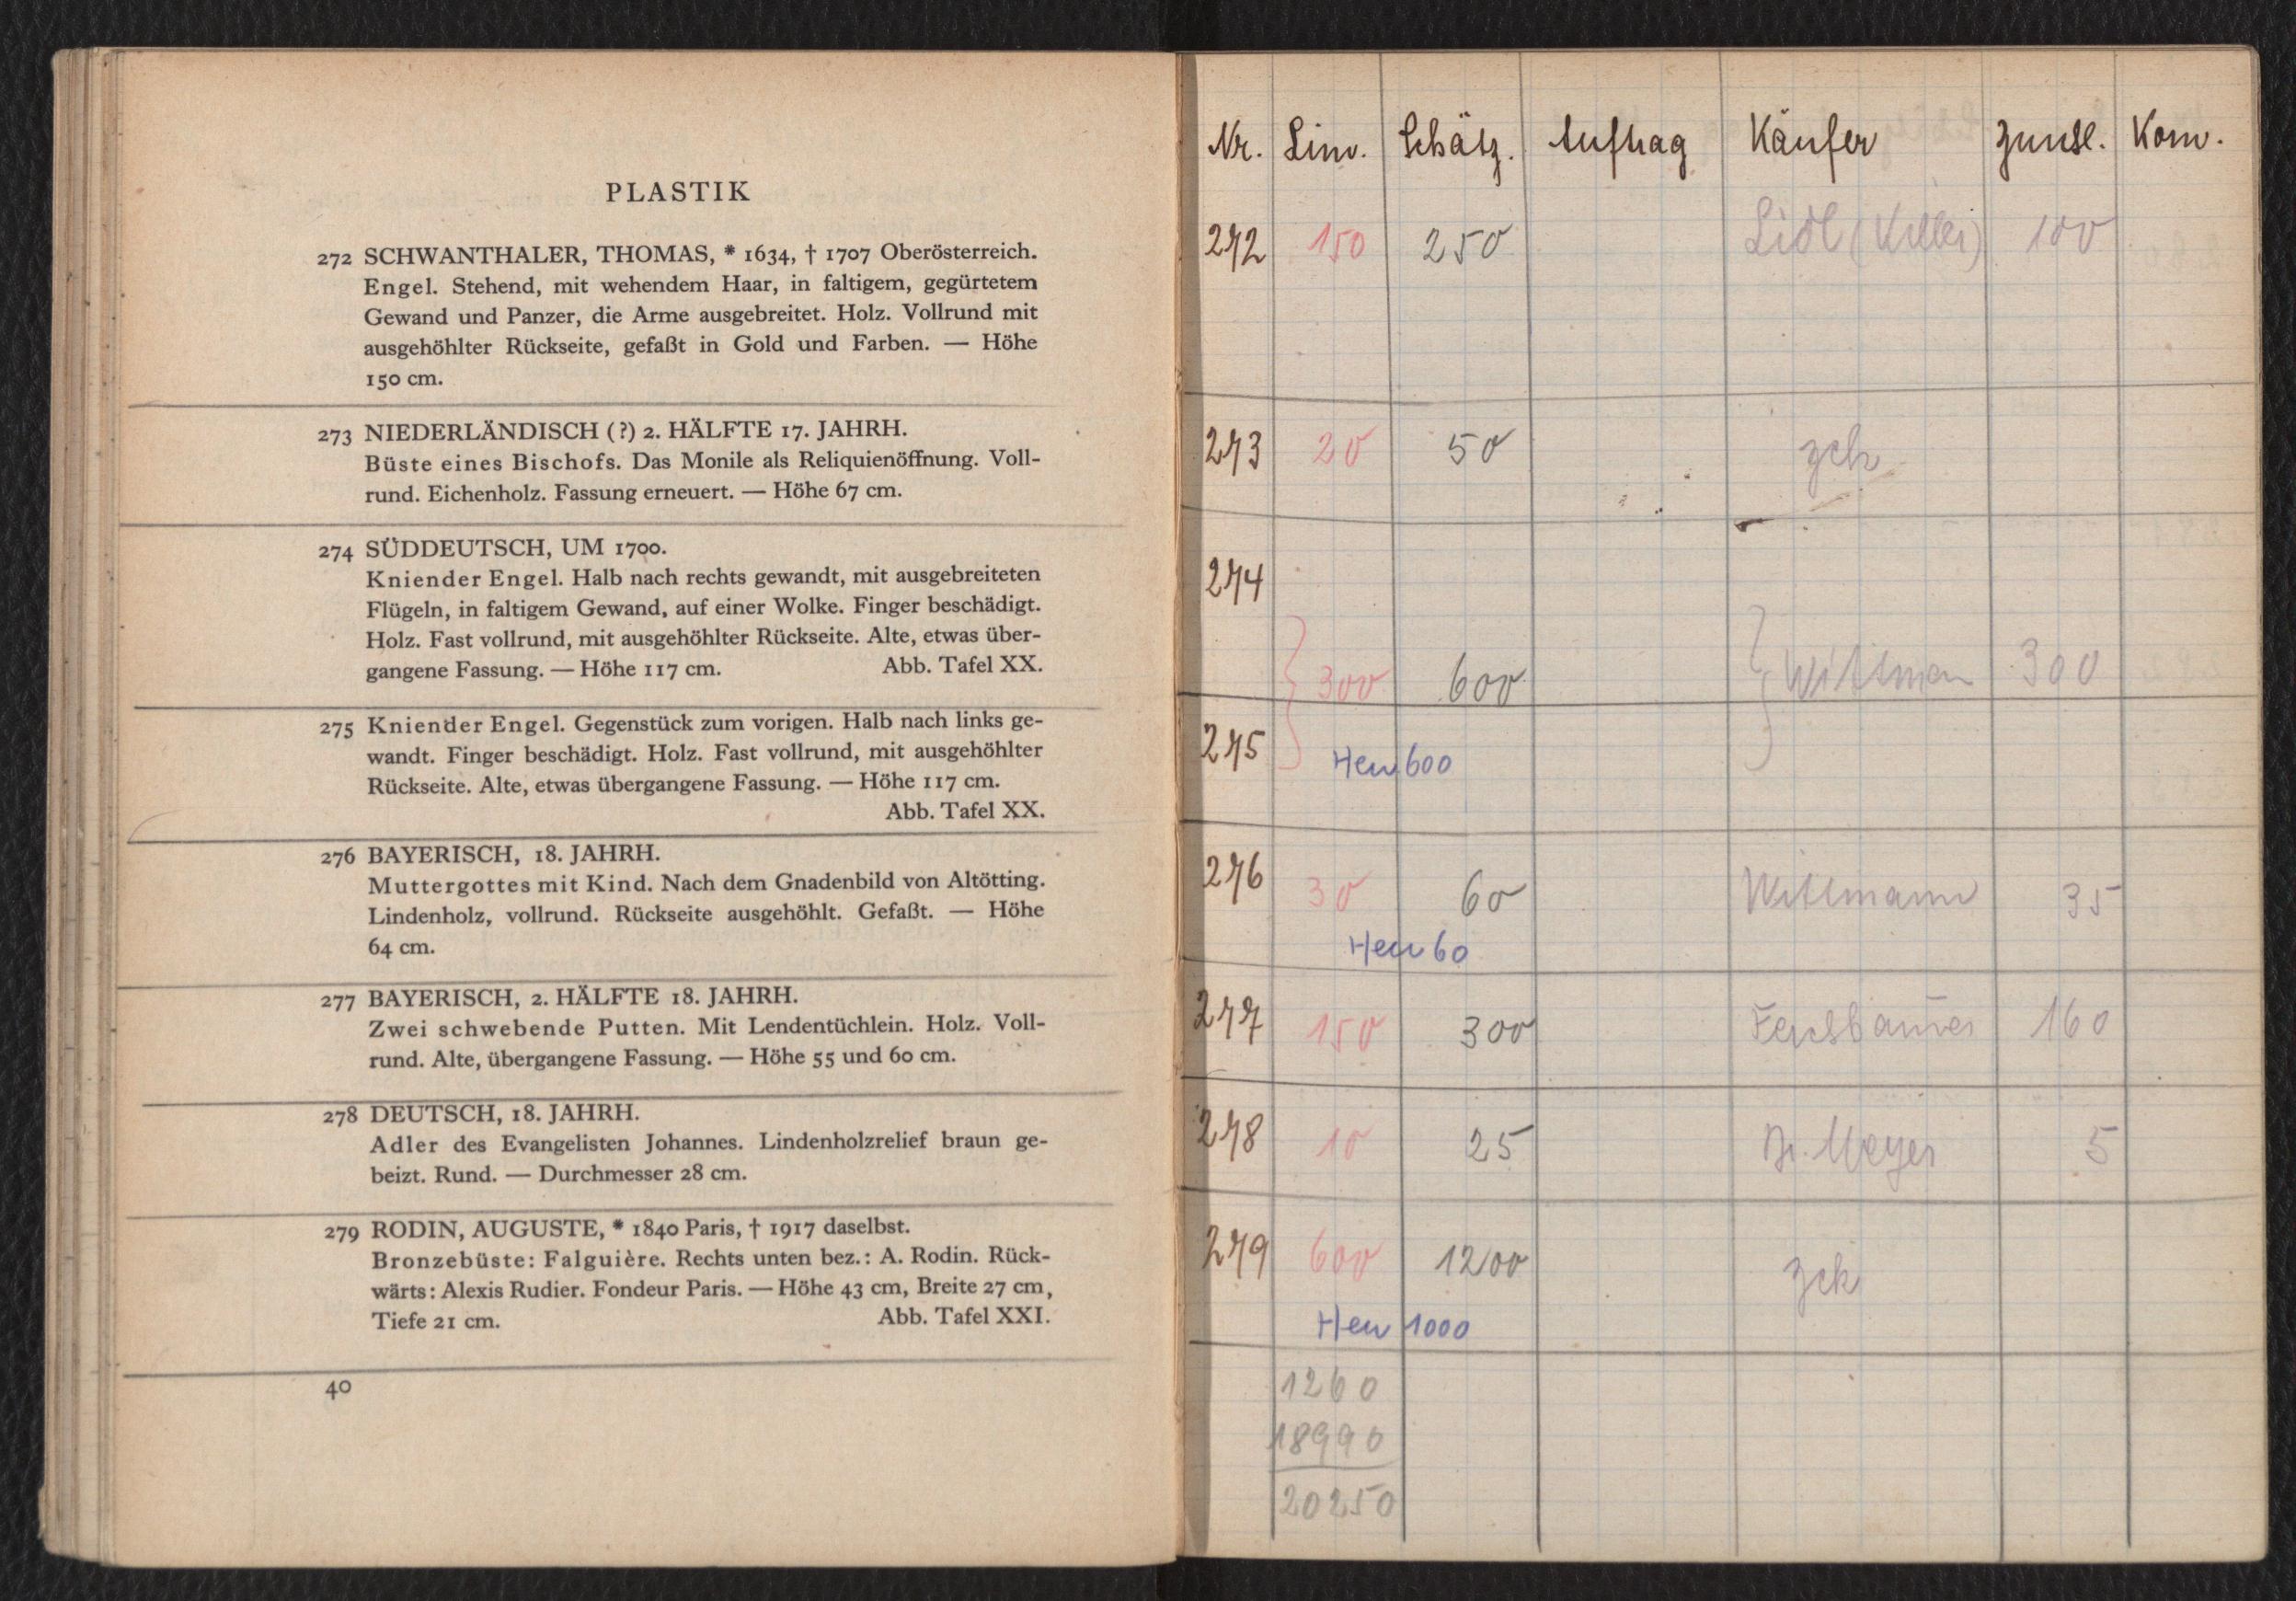 PLASTIK
272 SCHWANTHALER, THOMAS, * 1634, † 1707 Oberösterreich.
Engel. Stehend, mit wehendem Haar, in faltigem, gegürtetem
Gewand und Panzer, die Arme ausgebreitet. Holz. Vollrund mit
ausgehöhlter Rückseite, gefaßt in Gold und Farben. — Höhe
150 cm.
273 NIEDERLÄNDISCH (?) 2. HÄLFTE 17. JAHRH.
Büste eines Bischofs. Das Monile als Reliquienöffnung. Voll-
rund. Eichenholz. Fassung erneuert. — Höhe 67 cm.
274 SÜDDEUTSCH, UM 1700.
Kniender Engel. Halb nach rechts gewandt, mit ausgebreiteten
Flügeln, in faltigem Gewand, auf einer Wolke. Finger beschädigt.
Holz. Fast vollrund, mit ausgehöhlter Rückseite. Alte, etwas über-
gangene Fassung. — Höhe 117 cm. Abb. Tafel XX.
275 Kniender Engel. Gegenstück zum vorigen. Halb nach links ge-
wandt. Finger beschädigt. Holz. Fast vollrund, mit ausgehöhlter
Rückseite. Alte, etwas übergangene Fassung. — Höhe 117 cm.
Abb. Tafel XX.
276 BAYERISCH, 18. JAHRH.
Muttergottes mit Kind. Nach dem Gnadenbild von Altötting.
Lindenholz, vollrund. Rückseite ausgehöhlt. Gefaßt. — Höhe
64 cm.
277 BAYERISCH, 2. HÄLFTE 18. JAHRH.
Zwei schwebende Putten. Mit Lendentüchlein. Holz. Voll-
rund. Alte, übergangene Fassung. — Höhe 55 und 60 cm.
278 DEUTSCH, 18. JAHRH.
Adler des Evangelisten Johannes. Lindenholzrelief braun ge-
beizt. Rund. — Durchmesser 28 cm.
279 RODIN, AUGUSTE, * 1840 Paris, † 1917 daselbst.
Bronzebüste: Falguière. Rechts unten bez.: A. Rodin. Rück-
wärts: Alexis Rudier. Fondeur Paris. — Höhe 43 cm, Breite 27 cm,
Tiefe 21 cm. Abb. Tafel XXI.
40
Nr. Lim. Schätz. Auftrag Käufer Zuschl. Kom.
272 150 250 Lidl 100
273 20 50 zck
274
300 600 Wittman 300
275 Heu 600
276 30 60 Wittmann 35
Heu 60
277 150 300 160
278 10 25 Dr. Meyer 5
279 600 1200 zck
Heu 1000
1260
18990
20250